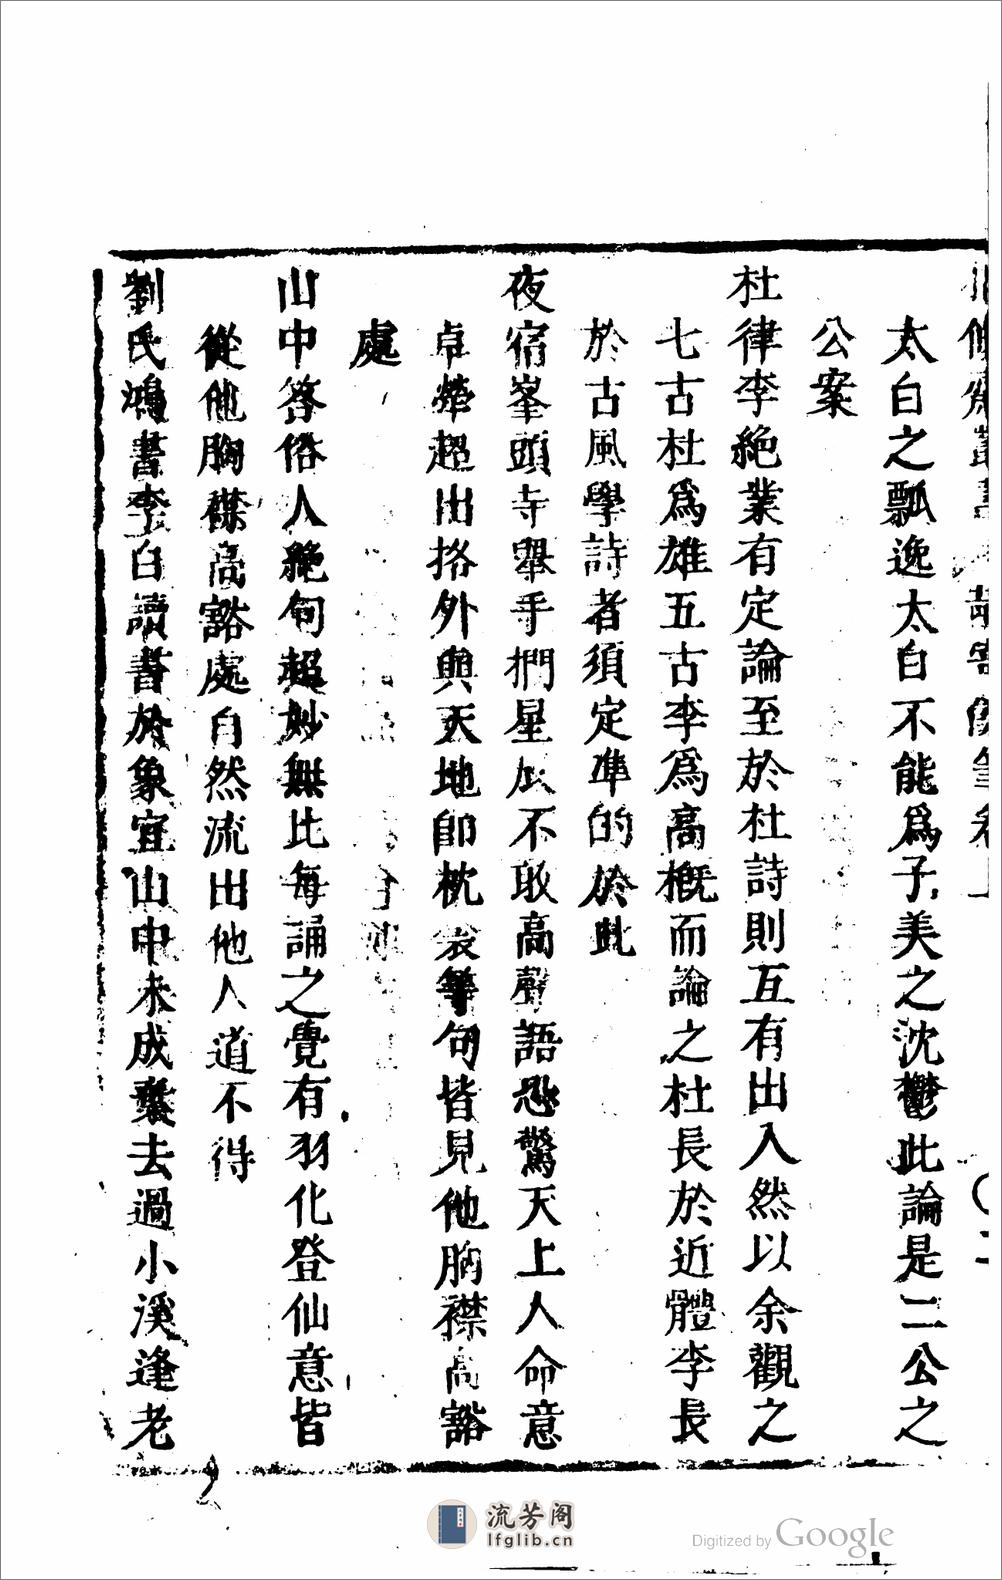 太白之飄逸太白不能爲子美之沈鬱此論是二公之
公案
杜律李絶業有定論至於杜詩則互有出入然以余觀之
七古杜爲雄五古李爲高槪而論之杜長於近體李長
於古風學詩者須定準的於此
夜宿峯頭寺舉手捫星辰不敢高聲語恐驚天上人命意
卓犖超出挌外與天地卽枕衾等句皆見他胸襟高豁
處
山中答俗人絶句超妙無比每誦之覺有羽化登仙意皆
從他胸襟高豁處自然流出他人道不得
劉氏鴻書李白讀書於象宜山中未成棄去過小溪逢老
流芳阁
lfglib.cn
Digitized by Google